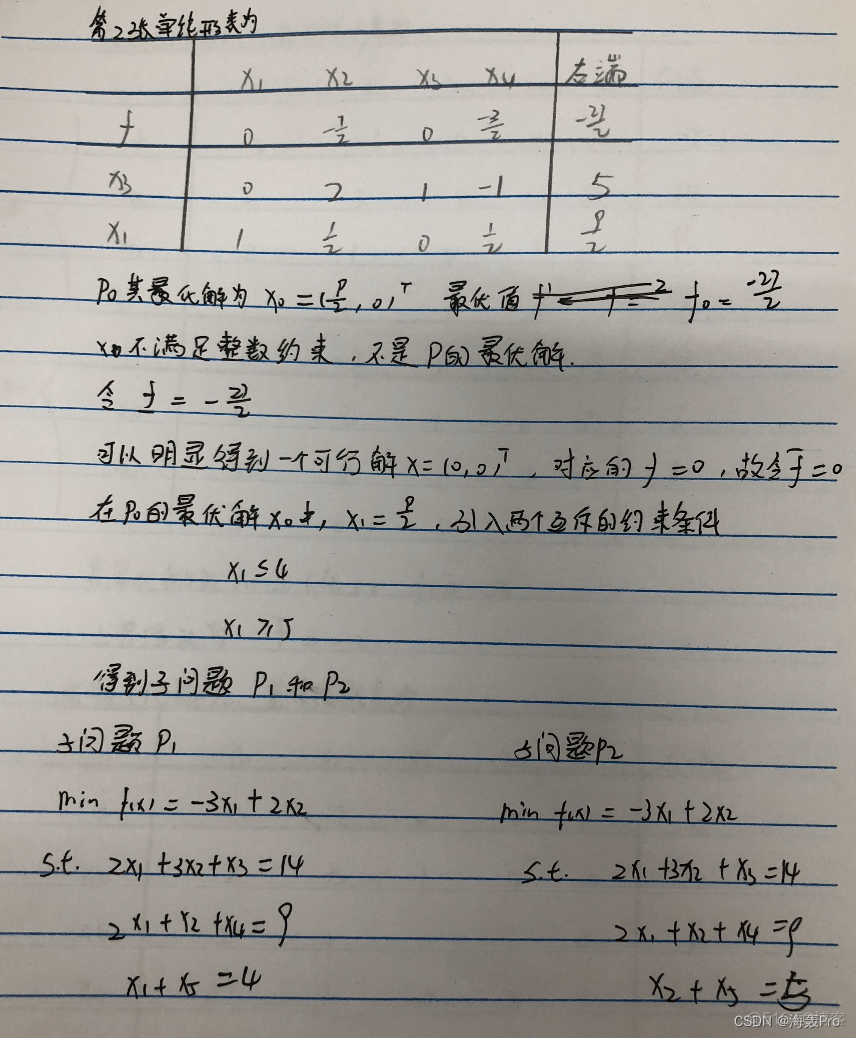 第2张单纯形表为
x1 x2 x3 x4 右端
f 0 -1/2 0 -3/2 -27/2
x3 0 2 1 -1 5
x1 1 1/2 0 1/2 9/2
P0其最优解为 x0 = (9/2, 0)T 最优值 f0 = -27/2
x0不满足整数约束，不是P的最优解.
令 f = -27/2
可以明显得到一个可行解x=(0,0)T，对应的f=0，故令f̄=0
在P0的最优解x0中，x1=9/2，引入两个互斥的约束条件
x1 ≤ 4
x1 ≥ 5
得到子问题 P1 和 P2
子问题P1 子问题P2
min f(x) = -3x1 + 2x2 min f(x) = -3x1 + 2x2
s.t. 2x1 + 3x2 + x3 = 14 s.t. 2x1 + 3x2 + x3 = 14
2x1 + x2 + x4 = 9 2x1 + x2 + x4 = 9
x1 + x5 = 4 x2 + x5 =
CSDN @海轰Pro